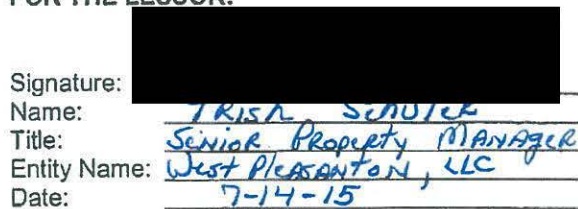 FOR THE LESSOR:
Signature:
Name: TRISH
Title: SENIOR PROPERTY MANAGER
Entity Name: West PleasantON, LLC
Date: 7-14-15